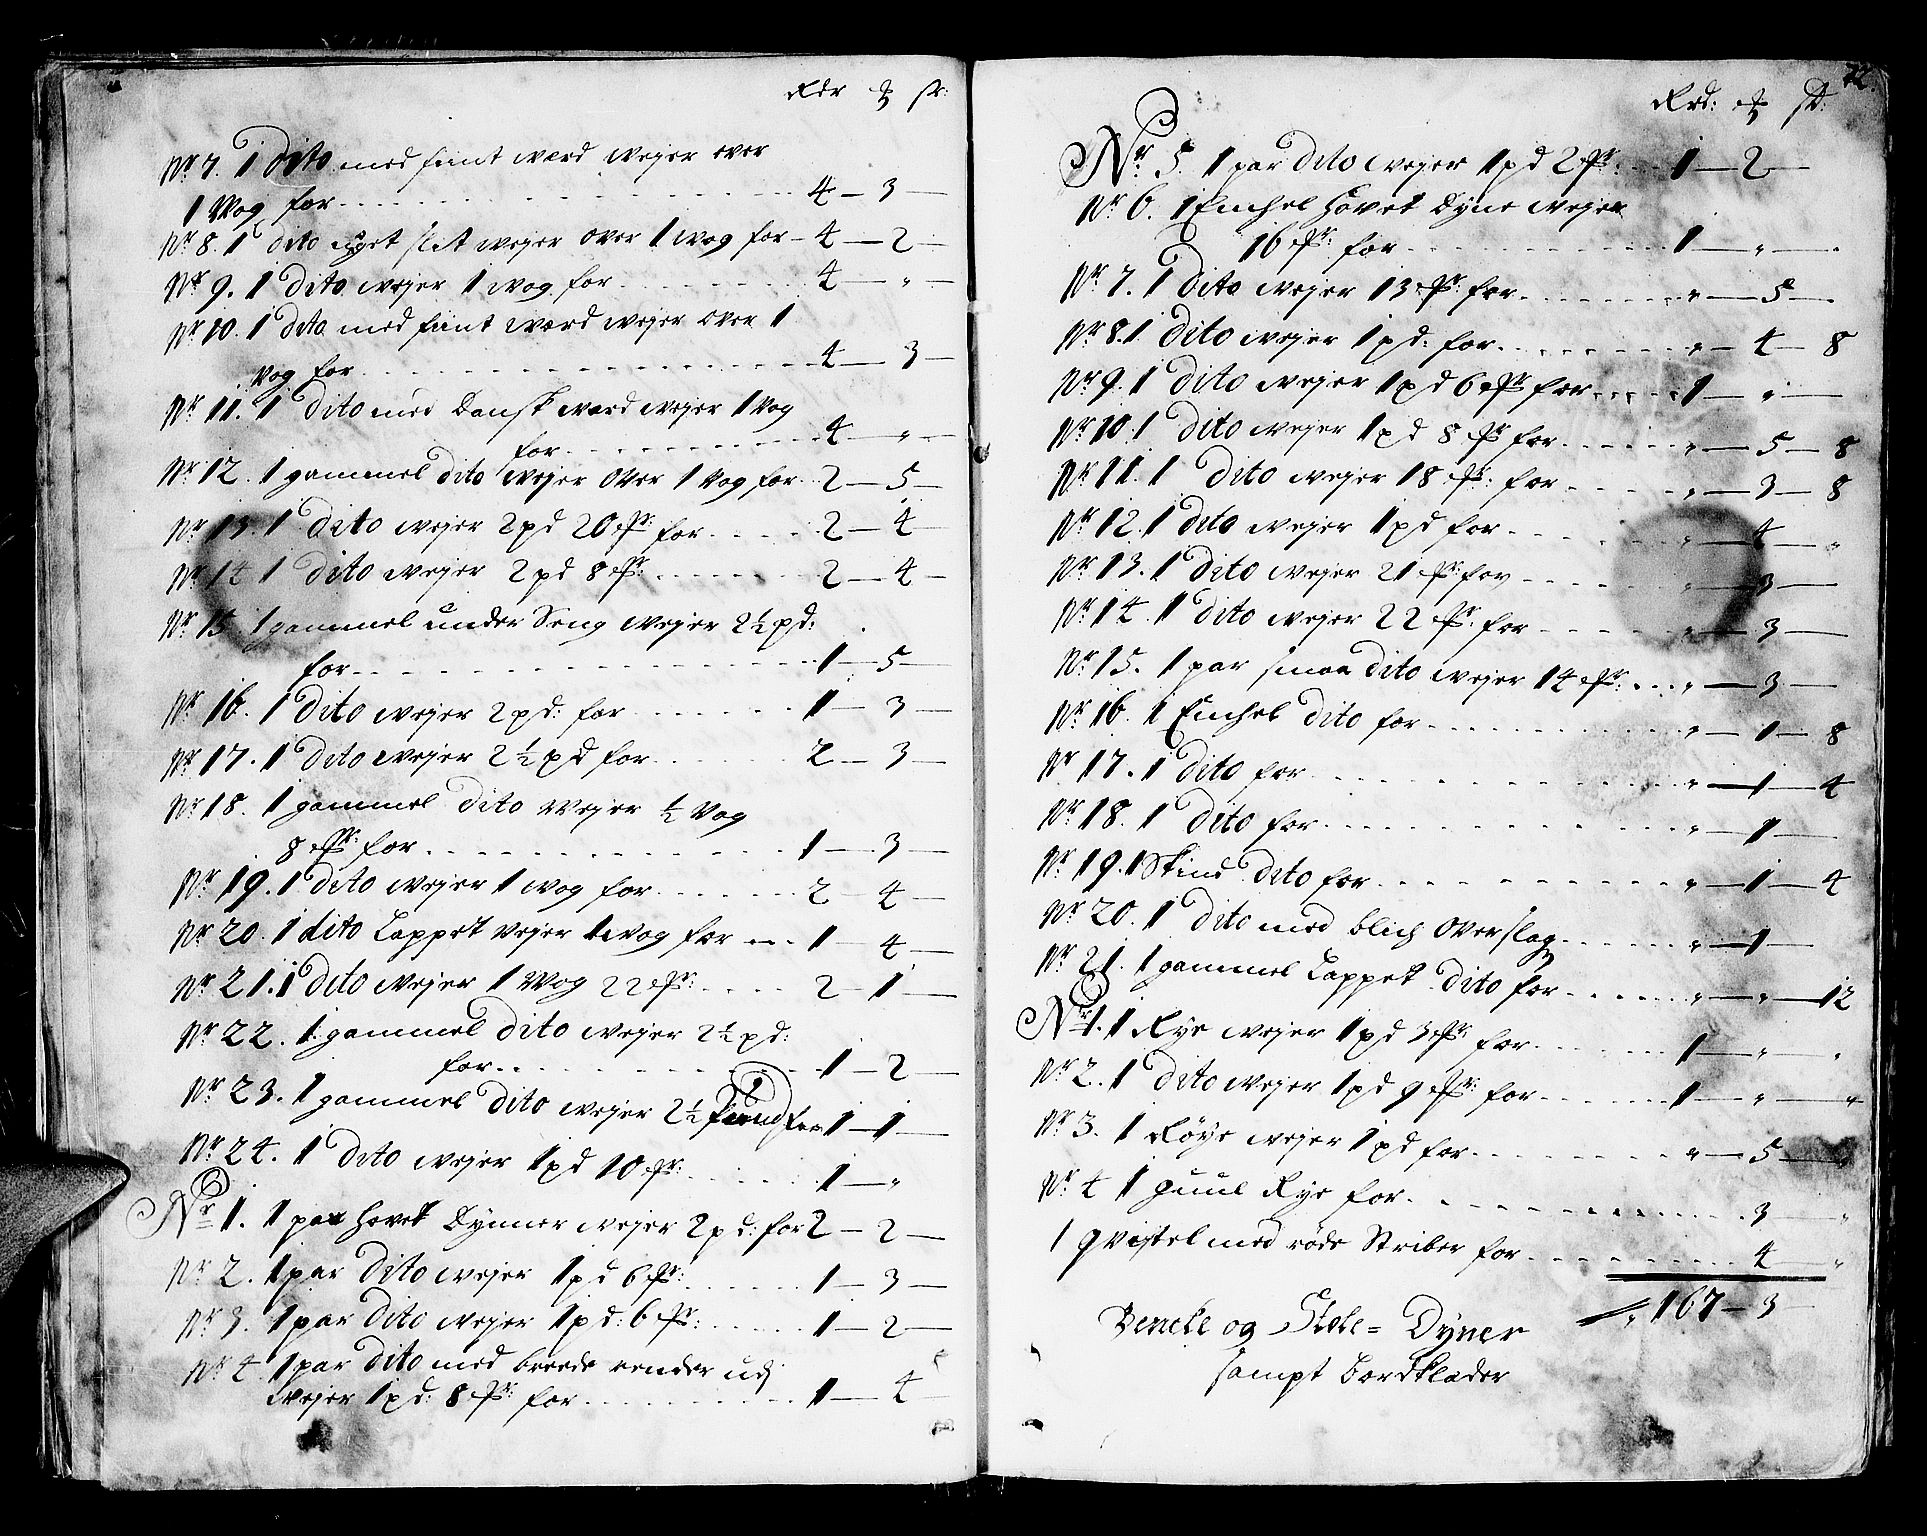 Rdr ꝸ sk:
Nr 7. 1 dito med fiint waed wejer over
1 Wog for 4 — 3 —
Nr 8. 1 dito nget slet wejer over 1 wog for 4 — 2 —
Nr 9. 1 Dito wejer 1 wog for 4 — " —
Nr 10. 1 dito med fiint waed wejer over 1
Vog for 4 — 3 —
Nr 11. 1 Dito med Dansk waed wejer 1 Vog
for 4 — " —
Nr 12. 1 gammel dito wejer over 1 Vog for 2 — 5 —
Nr 13. 1 dito wejer 2 pd 20 mk: for 2 — 4 —
Nr 14 1 Dito wejer 2 pd 8 mk: 2 — 4 —
Nr 15. 1 gammel under Seng wejer 2½ pd:
for 1 — 5 —
Nr 16. 1 Dito wejer 2 pd: for 1 — 3 —
Nr 17. 1 Dito wejer 2½ pd for 2 — 3 —
Nr 18. 1 gammel Dito wejer ½ Vog
8 mk: for 1 — 3 —
Nr 19. 1 Dito wejer 1 wog for 2 — 4 —
Nr 20. 1 dito Lappet vejer 1 wog for 1 — 4 —
Nr 21. 1 Dito wejer 1 Wog 22 mk: 2 — 1 —
Nr 22. 1 gammel Dito wejer 2½ pd:
for 1 — 2 —
Nr 23. 1 gammel Dito wejer 2½ Pund for 1 — 1 —
Nr 24. 1 Dito wejer 1 pd 10 mk: 1 — "
Nr 1. 1 par Hovet Dynner wejer 2 pd: for 2 — 2 —
Nr 2. 1 par Dito wejer 1 pd 6 mk: 1 — 3 —
Nr 3. 1 par Dito wejer 1 pd: 6 mk: 1 — 2 —
Nr 4. 1 par Dito med breede render udj
wejer 1 pd: 8 mk: for 1 — 4
72.
Rdr: ꝸ sk:
Nr 5. 1 par Dito wejer 1 pd 2 mk: 1 — 2 —
Nr 6. 1 Enchel Hovet Dyne wejer
16 mk: for 1 — " — .
Nr 7. 1 Dito wejer 13 mk: for " — 5 —
Nr 8. 1 Dito wejer 1 pd: for " — 4 — 8
Nr 9. 1 Dito wejer 1 pd 6 mk for 1 — " —
Nr 10. 1 Dito wejer 1 pd 8 mk for " — 5 — 8
Nr 11. 1 Dito wejer 18 mk: for " — 3 — 8
Nr 12. 1 Dito wejer 1 pd for " — 4 — "
Nr 13. 1 Dito wejer 21 mk: for " — 3 —
Nr 14. 1 Dito wejer 22 mk: for " — 3 —
Nr 15. 1 par smaa Dito wejer 14 mk: " — 3 —
Nr 16. 1 Enchel Dito for " — 1 — 8
Nr 17. 1 Dito for " — 1 — 4
Nr 18. 1 Dito for " — 1 —
Nr 19. 1 Skind Dito for " — 1 — 4
Nr 20. 1 Dito med blich Overslag " — 1 —
Nr 21. 1 gammel Lappet Dito for " — " — 12
Nr 1. 1 Rye wejer 1 pd 3 mk: for 1 — " "
Nr 2. 1 Dito wejer 1 pd 9 mk: for 1 — " — "
Nr 3. 1 Røye wejer 1 pd for " — 5 —
Nr 4 1 guul Rye for 3 — "
1 qvistel med røde Striber for 4 — "
167 — 3
Bencke og Stole = Dyner
sampt Bordklæder